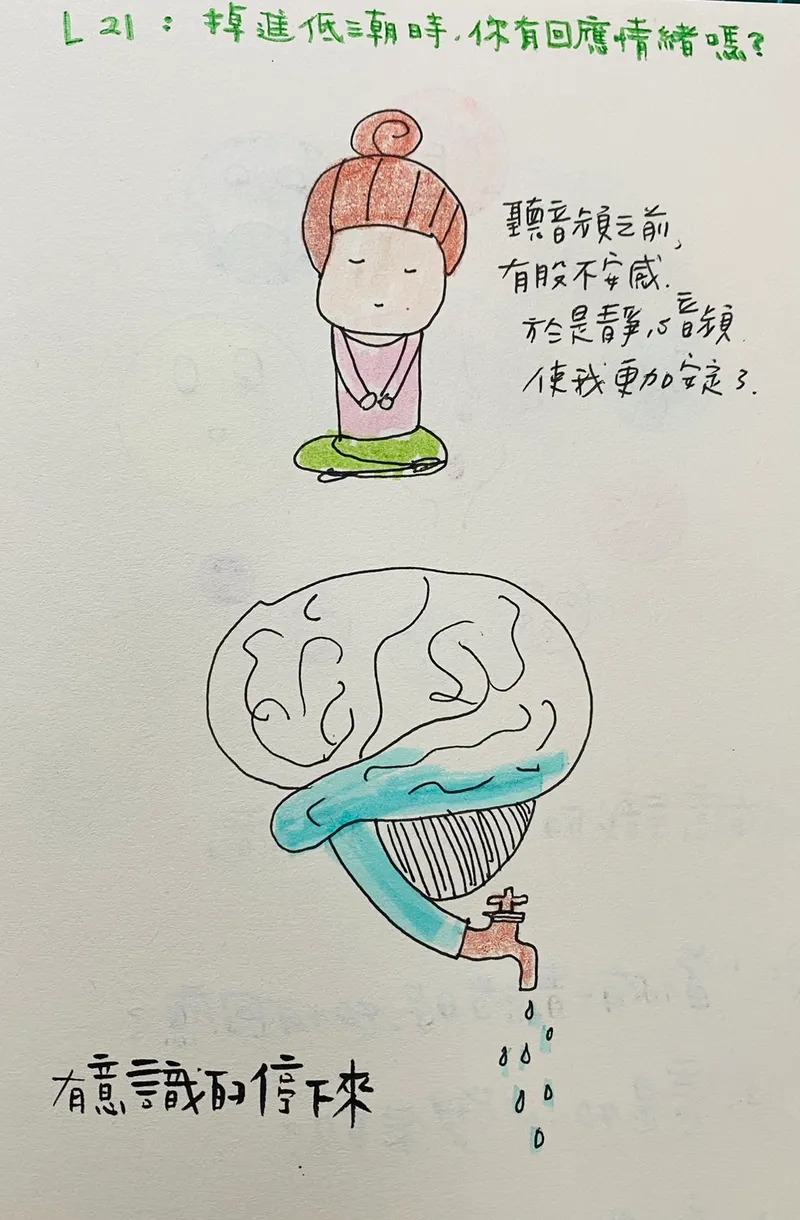 L21：掉進低潮時，你有回應情緒嗎？
聽音頻之前，
有股不安感．
於是靜心音頻
使我更加安定了．
有意識的停下來